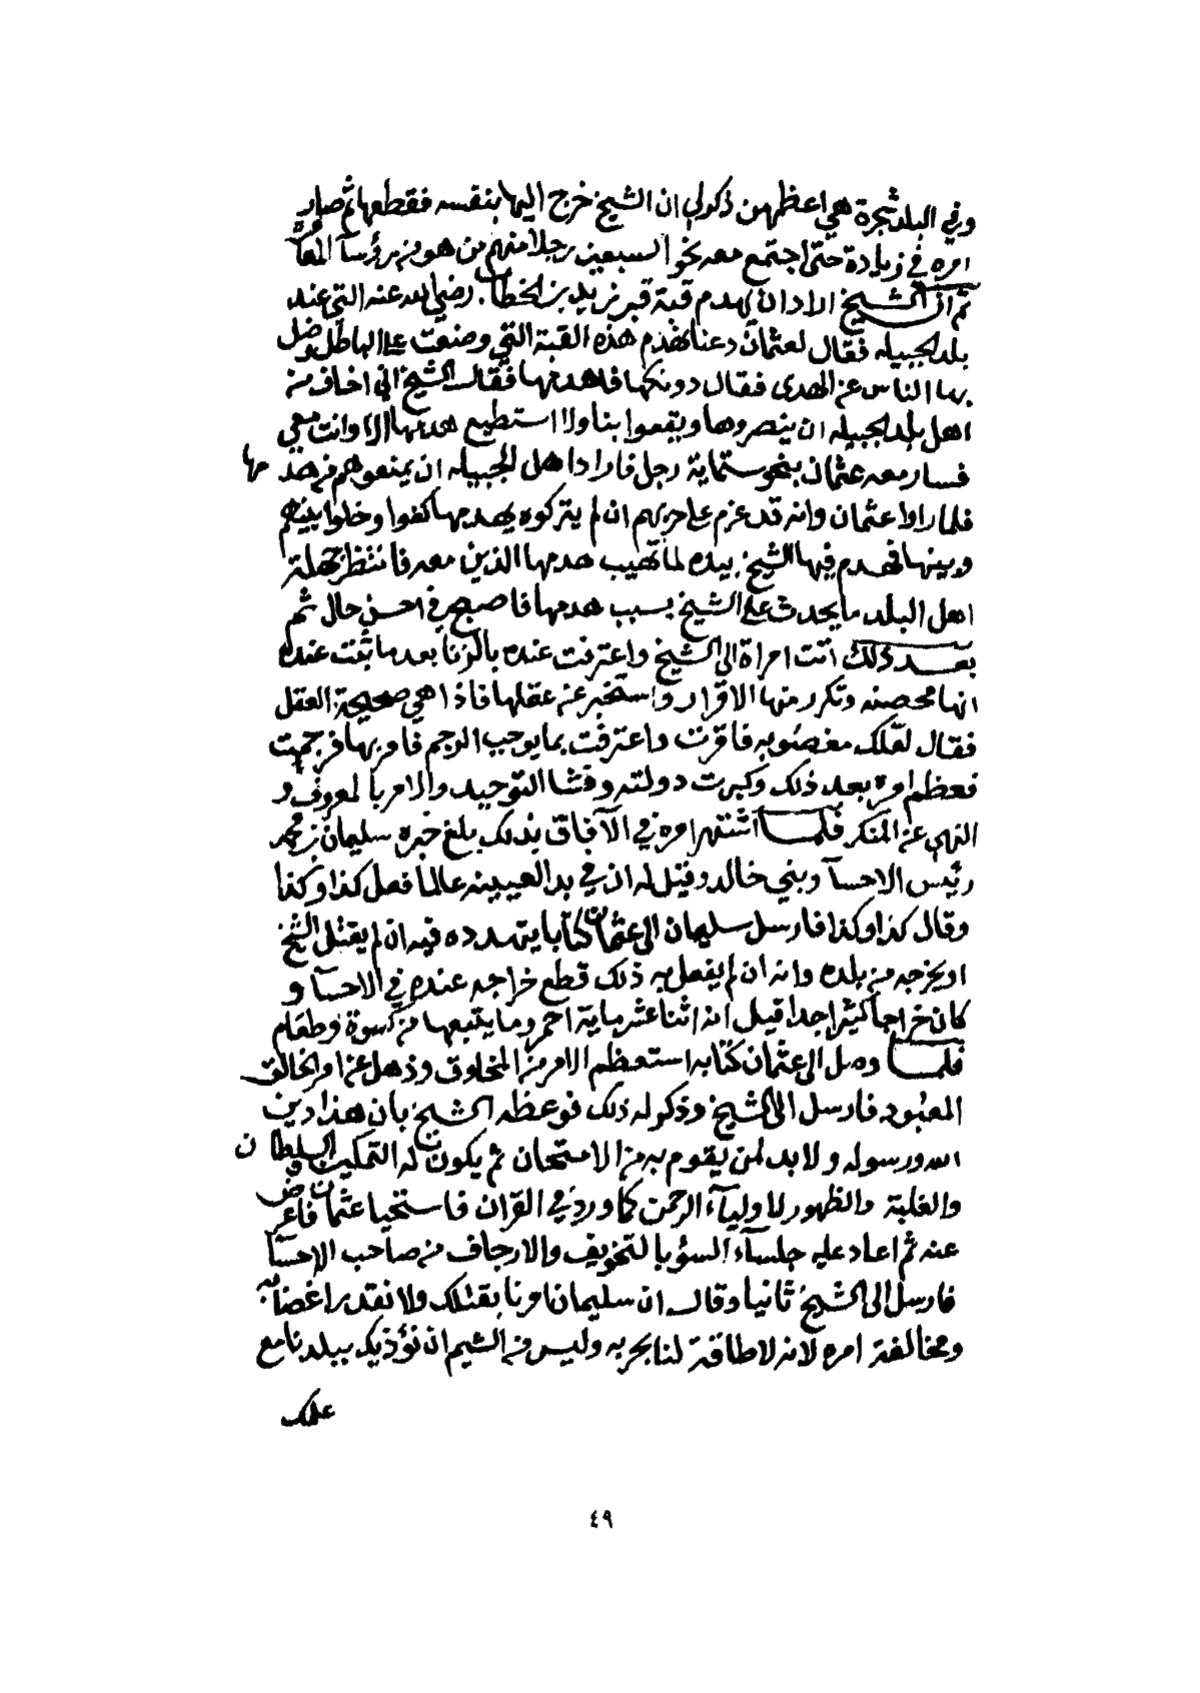 وفي البلد شجرة هي اعظمهن ذكر لي ان الشيخ خرج اليها بنفسه فقطعها ثم صار
امره في زيادة حتى اجتمع معه نحو السبعين رجلا منهم من هو من رؤسآ المعامرة
ثم ان الشيخ اراد ان يهدم قبة قبر زيد بن الخطاب رضي الله عنه التي عند
بلد الجبيله فقال لعثمان دعنا نهدم هذه القبة التي وضعت على الباطل وضل
بها الناس عن الهدى فقال دونكها فاهدمها فقال الشيخ اني اخاف من
اهل بلد الجبيله ان ينصروها ويقعوا بنا ولا استطيع هدمها الا وانت معي
فسار معه عثمان بنحو ستماية رجل فاراد اهل الجبيله ان يمنعوهم من هدمها
فلما راوا عثمان وانه قد عزم على حربهم ان لم يتركوه يهدمها كفوا وخلوا بينهم
وبينها فهدم فيها الشيخ بيده لما تهيب هدمها الذين معه فانتظر جهلة
اهل البلد ما يحدث على الشيخ بسبب هدمها فاصبح في احسن حال ثم
بعد ذلك اتت امراة الى الشيخ واعترفت عنده بالزنا بعد ما ثبت عنده
انها محصنه وتكرر منها الاقرار واستخبر عن عقلها فاذا هي صحيحة العقل
فقال لعلك مغصوبه فاقرت واعترفت بما يوجب الرجم فامر بها فرجمت
فعظم امره بعد ذلك وكبرت دولته وفشا التوحيد والامر بالمعروف و
النهي عن المنكر فلما اشتهر امره في الآفاق بذلك بلغ خبره سليمان بن محمد
رئيس الاحسآ وبني خالد وقيل له ان في بلد العيينه عالما فعل كذا وكذا
وقال كذا وكذا فارسل سليمان الى عثمان كتابا يتهدده فيه ان لم يقتل الشيخ
او يخرجه من بلده وانه ان لم يفعل به ذلك قطع خراجه عنده في الاحسآ و
كان خراجا كثيرا جدا قيل انه اثنا عشر ماية احمر وما يتبعها من كسوة وطعام
فلما وصل الى عثمان كتابه استعظم الامر من المخلوق وذهل عن امر الخالق
المعبود فارسل الى الشيخ وذكر له ذلك فوعظه الشيخ بان هذا دين
الله ورسوله ولا بد لمن يقوم به من الامتحان ثم يكون له التمكين والسلطان
والغلبة والظهور لاوليآء الرحمن كما ورد في القران فاستحيا عثمان فاعرض
عنه ثم اعاد عليه جلسآء السؤ بالتخويف والارجاف من صاحب الاحسآ
فارسل الى الشيخ ثانيا وقال ان سليمان امرنا بقتلك ولا نقدر اغضابه
ومخالفة امره لانه لا طاقة لنا بحربه وليس من الشيم ان نؤذيك ببلدنا مع
علمك
٤٩